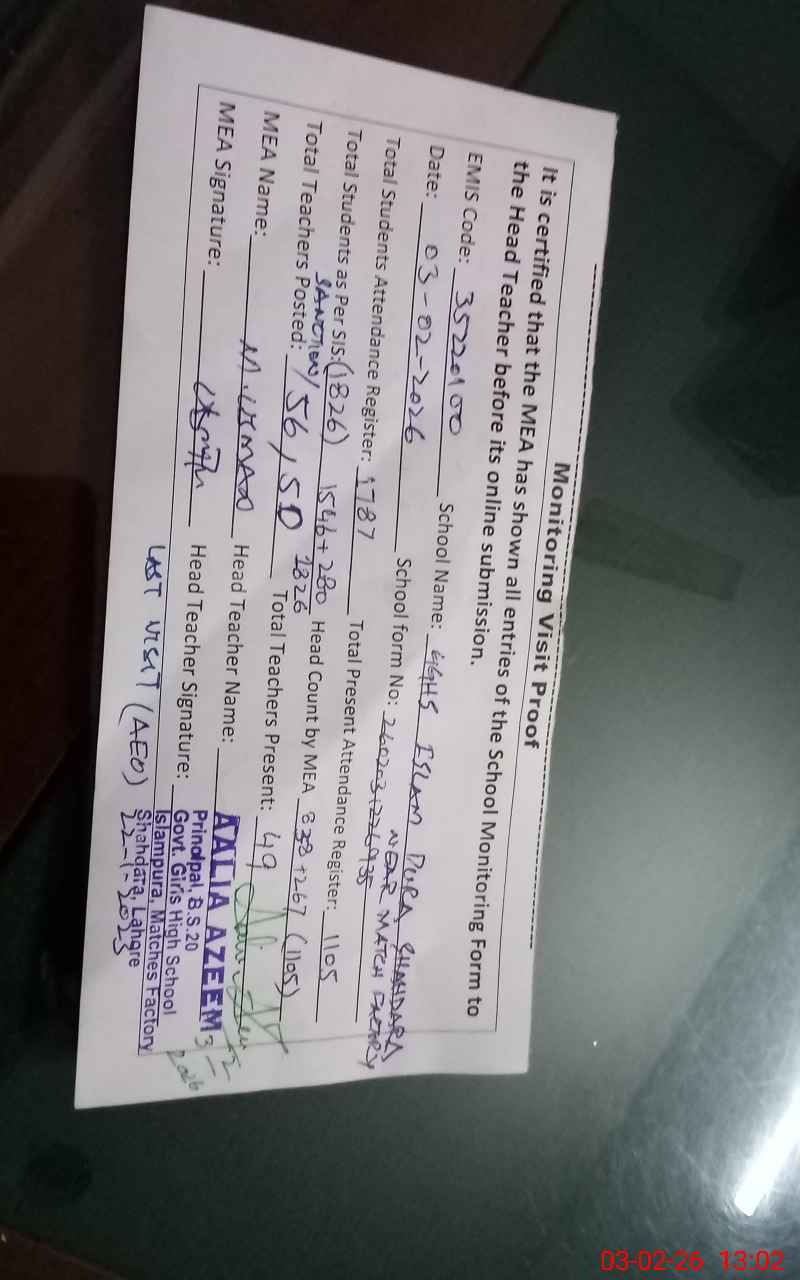 Monitoring Visit Proof
It is certified that the MEA has shown all entries of the School Monitoring Form to
the Head Teacher before its online submission.
EMIS Code: 35220100 School Name: GGHS ISLAM PURA SHAHDARA
NEAR MATCH FACTORY
Date: 03-02-2026 School form No:
Total Students Attendance Register: 1787 Total Present Attendance Register: 1105
Total Students as Per SIS: (1826) 1546+280 Head Count by MEA 838+267 (1105)
1826
SANCTION/
Total Teachers Posted: 56, 50 Total Teachers Present: 49
MEA Name: M. USMAN Head Teacher Name: AALIA AZEEM
MEA Signature: Head Teacher Signature:
Principal, B.S.20
Govt. Girls High School
Islampura, Matches Factory
Shahdara, Lahore
3-2-2026
LAST VISIT (AEO) 22-1-2025
03-02-26 13:02